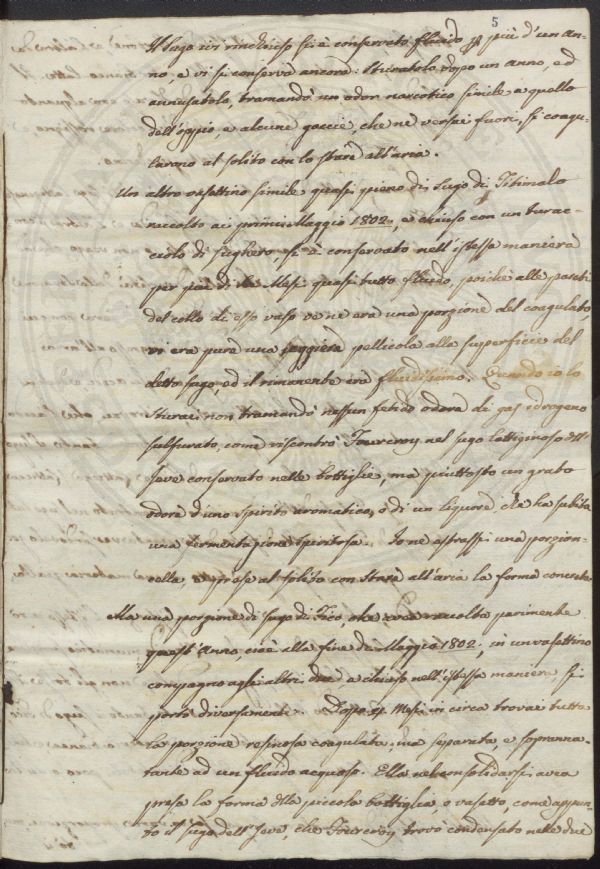 5
Il sugo ivi rinchiuso si è conservato fluido p più d'un an-
no, e vi si conserva ancora: Sturatolo dopo un anno, ed
annusatolo, tramandò un odor narcotico simile a quello
dell'oppio, e alcune goccie, che ne versai fuori, si coagu-
larono al solito con lo stare all'aria.
Un altro vasettino simile quasi pieno di sugo di Titimalo
raccolto ai primi Maggio 1802, e chiuso con un turac-
ciolo di sughero, si è conservato nell'istessa maniera
per più di Mesi quasi tutto fluido, poichè alle pareti
del collo di esso vaso ve ne era una porzione del coagulato,
vi era pure una leggiera pellicola alla superficie del
detto sugo, ed il rimanente era fluidissimo. Quando io lo
sturai non tramandò nessun fetido odore di gas idrogeno
sulfurato, come riscontrò Fourcroy nel sugo lattiginoso dll'
Jeve conservato nelle bottiglie, ma piuttosto un grato
odore d'uno spirito aromatico, o di un liquore che ha subita
una fermentazione spiritosa. Io ne astrassi una porzion-
cella, e prese al solito con stare all'aria la forma concreta.
Ma una porzione di sugo di Fico, che avea raccolta parimente
quest'anno, cioè alla fine di Maggio 1802, in un vasettino
compagno agli altri due, e chiuso nell'istessa maniera si
portò diversamente. Dopo Mesi in circa trovai tutta
la porzione resinosa coagulata, ma separata, e soprannua-
tante ad un fluido acquoso. Ella nel consolidarsi avea
presa la forma dlla piccola bottiglia, o vasetto, come appun-
to il sugo dell'Jeve, che Fourcroy trovò condensato nelle due